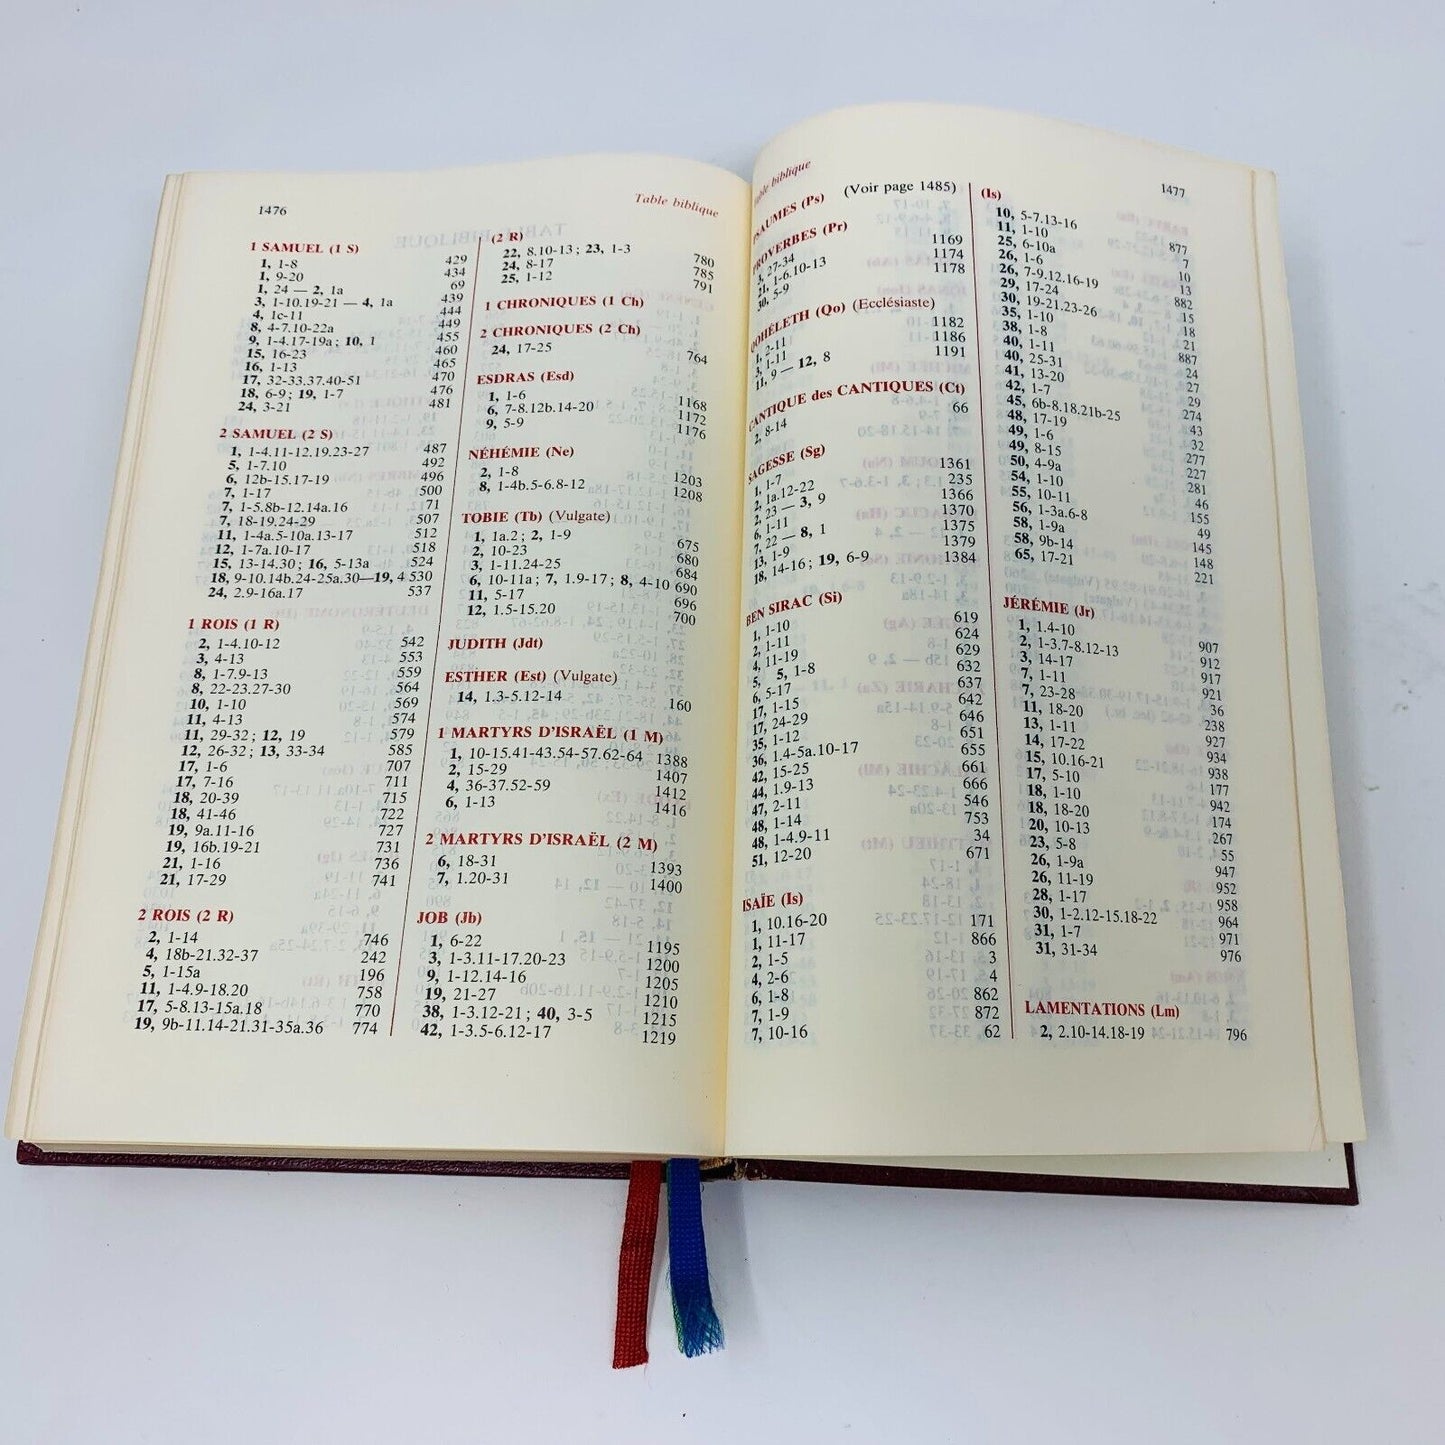 1476
Table biblique
1 SAMUEL (1 S)
1, 1-8 429
1, 9-20 434
1, 24 — 2, 1a 69
3, 1-10.19-21 — 4, 1a 439
4, 1c-11 444
8, 4-7.10-22a 449
9, 1-4.17-19a ; 10, 1 455
15, 16-23 460
16, 1-13 465
17, 32-33.37.40-51 470
18, 6-9 ; 19, 1-7 476
24, 3-21 481
2 SAMUEL (2 S)
1, 1-4.11-12.19.23-27 487
5, 1-7.10 492
6, 12b-15.17-19 496
7, 1-17 500
7, 1-5.8b-12.14a.16 71
7, 18-19.24-29 507
11, 1-4a.5-10a.13-17 512
12, 1-7a.10-17 518
15, 13-14.30 ; 16, 5-13a 524
18, 9-10.14b.24-25a.30—19, 4 530
24, 2.9-16a.17 537
1 ROIS (1 R)
2, 1-4.10-12 542
3, 4-13 553
8, 1-7.9-13 559
8, 22-23.27-30 564
10, 1-10 569
11, 4-13 574
11, 29-32 ; 12, 19 579
12, 26-32 ; 13, 33-34 585
17, 1-6 707
17, 7-16 711
18, 20-39 715
18, 41-46 722
19, 9a.11-16 727
19, 16b.19-21 731
21, 1-16 736
21, 17-29 741
2 ROIS (2 R)
2, 1-14 746
4, 18b-21.32-37 242
5, 1-15a 196
11, 1-4.9-18.20 758
17, 5-8.13-15a.18 770
19, 9b-11.14-21.31-35a.36 774
(2 R)
22, 8.10-13 ; 23, 1-3 780
24, 8-17 785
25, 1-12 791
1 CHRONIQUES (1 Ch)
2 CHRONIQUES (2 Ch)
24, 17-25 764
ESDRAS (Esd)
1, 1-6 1168
6, 7-8.12b.14-20 1172
9, 5-9 1176
NÉHÉMIE (Ne)
2, 1-8 1203
8, 1-4b.5-6.8-12 1208
TOBIE (Tb) (Vulgate)
1, 1a.2 ; 2, 1-9 675
2, 10-23 680
3, 1-11.24-25 684
6, 10-11a ; 7, 1.9-17 ; 8, 4-10 690
11, 5-17 696
12, 1.5-15.20 700
JUDITH (Jdt)
ESTHER (Est) (Vulgate)
14, 1.3-5.12-14 160
1 MARTYRS D'ISRAËL (1 M)
1, 10-15.41-43.54-57.62-64 1388
2, 15-29 1407
4, 36-37.52-59 1412
6, 1-13 1416
2 MARTYRS D'ISRAËL (2 M)
6, 18-31 1393
7, 1.20-31 1400
JOB (Jb)
1, 6-22 1195
3, 1-3.11-17.20-23 1200
9, 1-12.14-16 1205
19, 21-27 1210
38, 1-3.12-21 ; 40, 3-5 1215
42, 1-3.5-6.12-17 1219
biblique
1477
PSAUMES (Ps) (Voir page 1485)
PROVERBES (Pr)
3, 27-34 1169
21, 1-6.10-13 1174
30, 5-9 1178
QOHÉLETH (Qo) (Ecclésiaste)
1, 2-11 1182
3, 1-11 1186
11, 9 — 12, 8 1191
CANTIQUE des CANTIQUES (Ct)
2, 8-14 66
SAGESSE (Sg)
1, 1-7 1361
2, 1a.12-22 235
2, 23 — 3, 9 1366
6, 1-11 1370
7, 22 — 8, 1 1375
13, 1-9 1379
18, 14-16 ; 19, 6-9 1384
BEN SIRAC (Si)
1, 1-10 619
2, 1-11 624
4, 11-19 629
5, 5, 1-8 632
6, 5-17 637
17, 1-15 642
17, 24-29 646
35, 1-12 651
36, 1.4-5a.10-17 655
42, 15-25 661
44, 1.9-13 666
47, 2-11 546
48, 1-14 753
48, 1-4.9-11 34
51, 12-20 671
ISAÏE (Is)
1, 10.16-20 171
1, 11-17 866
2, 1-5 3
4, 2-6 4
6, 1-8 862
7, 1-9 872
7, 10-16 62
(Is)
10, 5-7.13-16 877
11, 1-10 7
25, 6-10a 10
26, 1-6 13
26, 7-9.12.16-19 882
29, 17-24 15
30, 19-21.23-26 18
35, 1-10 21
38, 1-8 887
40, 1-11 24
40, 25-31 27
41, 13-20 29
42, 1-7 274
45, 6b-8.18.21b-25 43
48, 17-19 32
49, 1-6 277
49, 8-15 227
50, 4-9a 281
54, 1-10 46
55, 10-11 155
56, 1-3a.6-8 49
58, 1-9a 145
58, 9b-14 148
65, 17-21 221
JÉRÉMIE (Jr)
1, 1.4-10 907
2, 1-3.7-8.12-13 912
3, 14-17 917
7, 1-11 921
7, 23-28 36
11, 18-20 238
13, 1-11 927
14, 17-22 934
15, 10.16-21 938
17, 5-10 177
18, 1-10 942
18, 18-20 174
20, 10-13 267
23, 5-8 55
26, 1-9a 947
26, 11-19 952
28, 1-17 958
30, 1-2.12-15.18-22 964
31, 1-7 971
31, 31-34 976
LAMENTATIONS (Lm)
2, 2.10-14.18-19 796